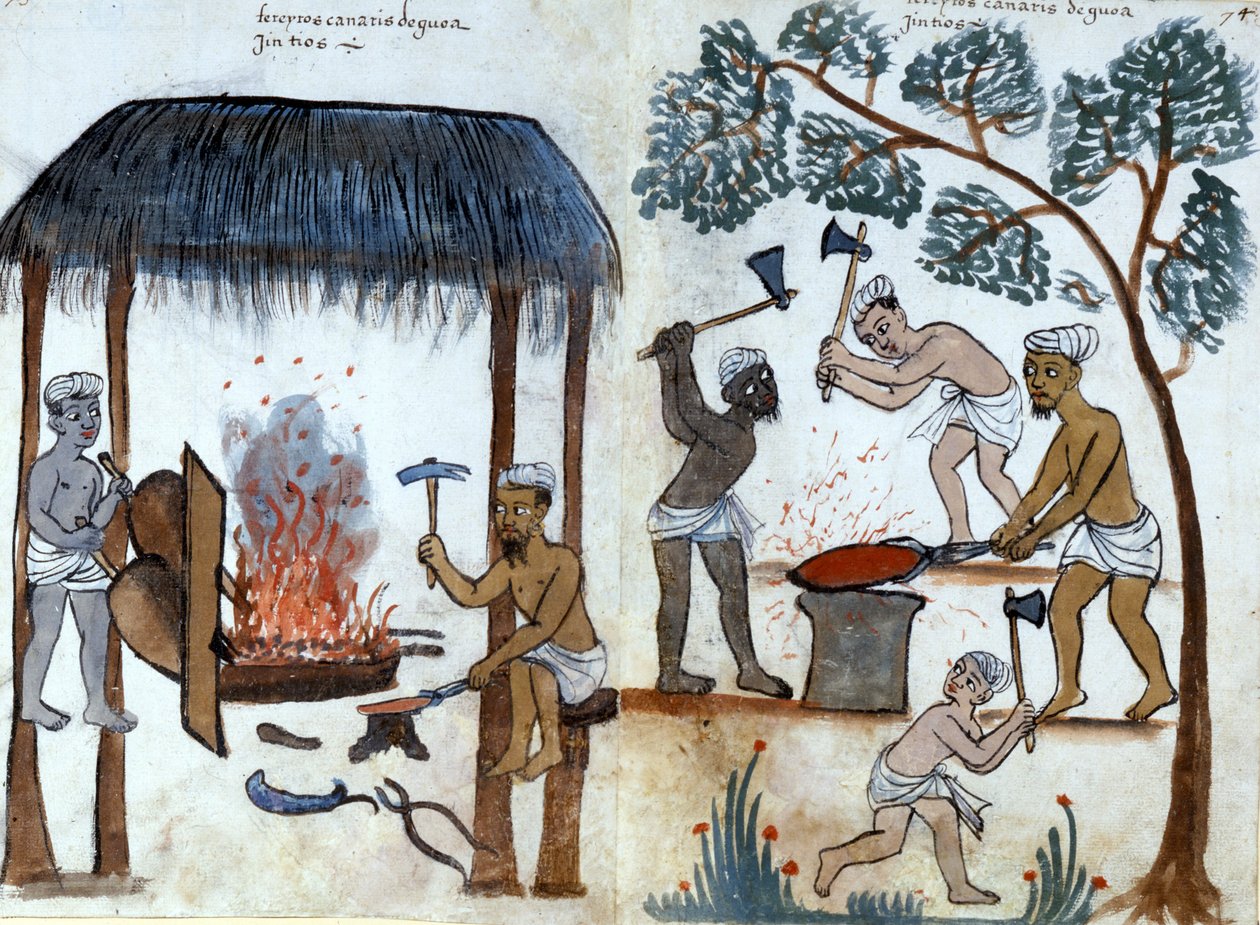 fereyros canaris de guoa
Jintios
fereyros canaris de guoa
Jintios
74